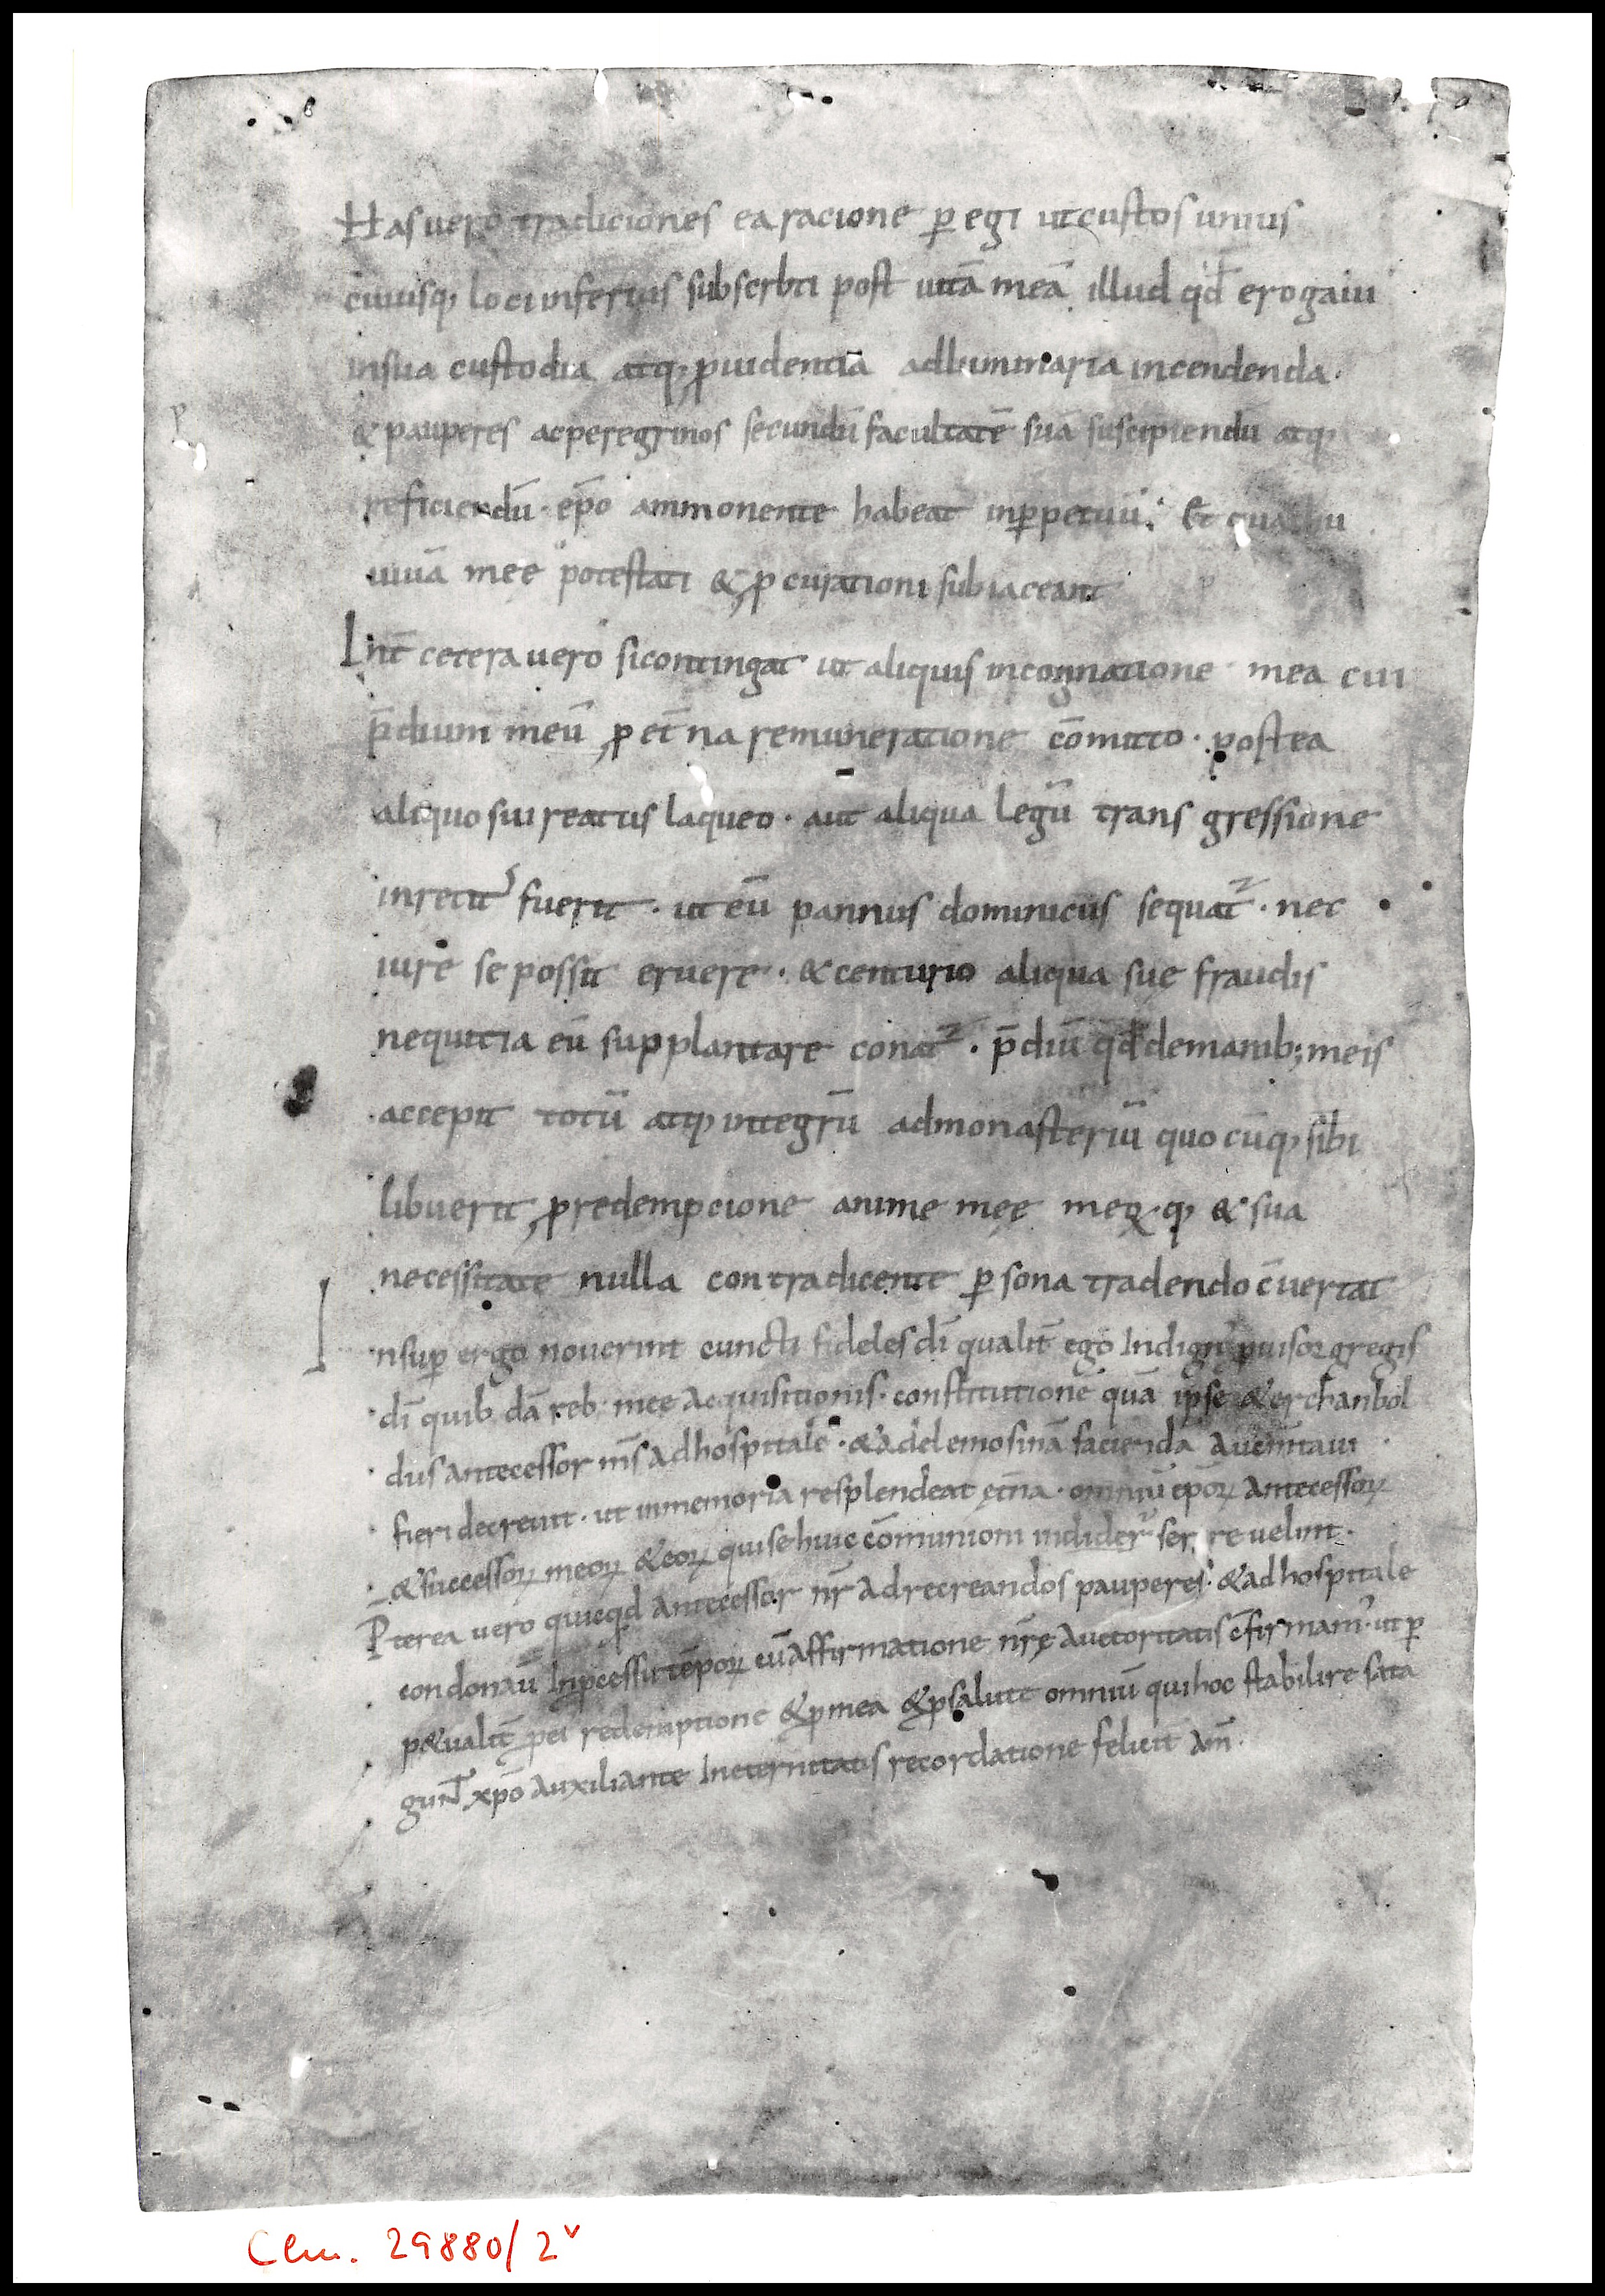 Has uero tradiciones ea racione ꝑegi ut custos unius
cuiusq; loci inferius subscrbti post uitā meā illud qđ erogaui
in sua custodia atq; ꝓuidentia ad luminaria incendenda.
& pauperes ac peregrinos secundū facultatē suā suscipiendū atq;
reficiendū. ep̄o ammonente habeat in ꝑpetuū. Et
uiuā mee potestati & ꝓcurationi subiaceant
Int̄ cetera uero si contingat ut aliquis in cognatione mea cui
p̄dium meū ꝓ et̄na remuneratione cōmitto. postea
aliquo sui reatus laqueo. aut aliqua legū transgressione
inretit᾽ fuerit. ut eū pannus dominicus sequat᷑. nec
iure se possit eruere. & centurio aliqua suę fraudis
nequitia eū supplantare conat᷑. p̄diū qđ de manib; meis
accepit totū atq; integrū ad monasteriū quocūq; sibi
libuerit ꝓ redempcione anime męe meoꝝ q; & sua
necessitate nulla contradicente ꝑsona tradendo c̄uertat
Insuꝑ ergo nouerint cuncti fideles dī qualit̄ ego Indign᾽ ꝓuisor gregis
dī quib dā reb; mee Acquisitionis. constitutione quā ipse & erchanbol
dus Antecessor nr̄s Ad hospitale. & ad elemosinā facienda Aucmtaui
fieri decreuit. ut in memoria resplendeat ęt̄na. omniū ep̄oꝝ Antecessoꝝ
& successoꝝ meoꝝ & eoꝝ qui se huic cōmunioni indider᷑ serere uelint.
P̄terea uero quicqd Antecessor nr̄ Ad recreandos pauperes. & ad hospitale
condonau In p̄cessu tēporꝝ cū Affirmatione nr̄ę Auctoritatis c̄firmam᾽. ut ꝑ
p&ualit̄ ꝓ ei redemptione & ꝓ mea & ꝓ salute omniū qui hoc stabilire sata
gun̄t xp̄o Auxiliante In eternitatis recordatione felicit Am̄.
Clm. 29880/2ᵛ